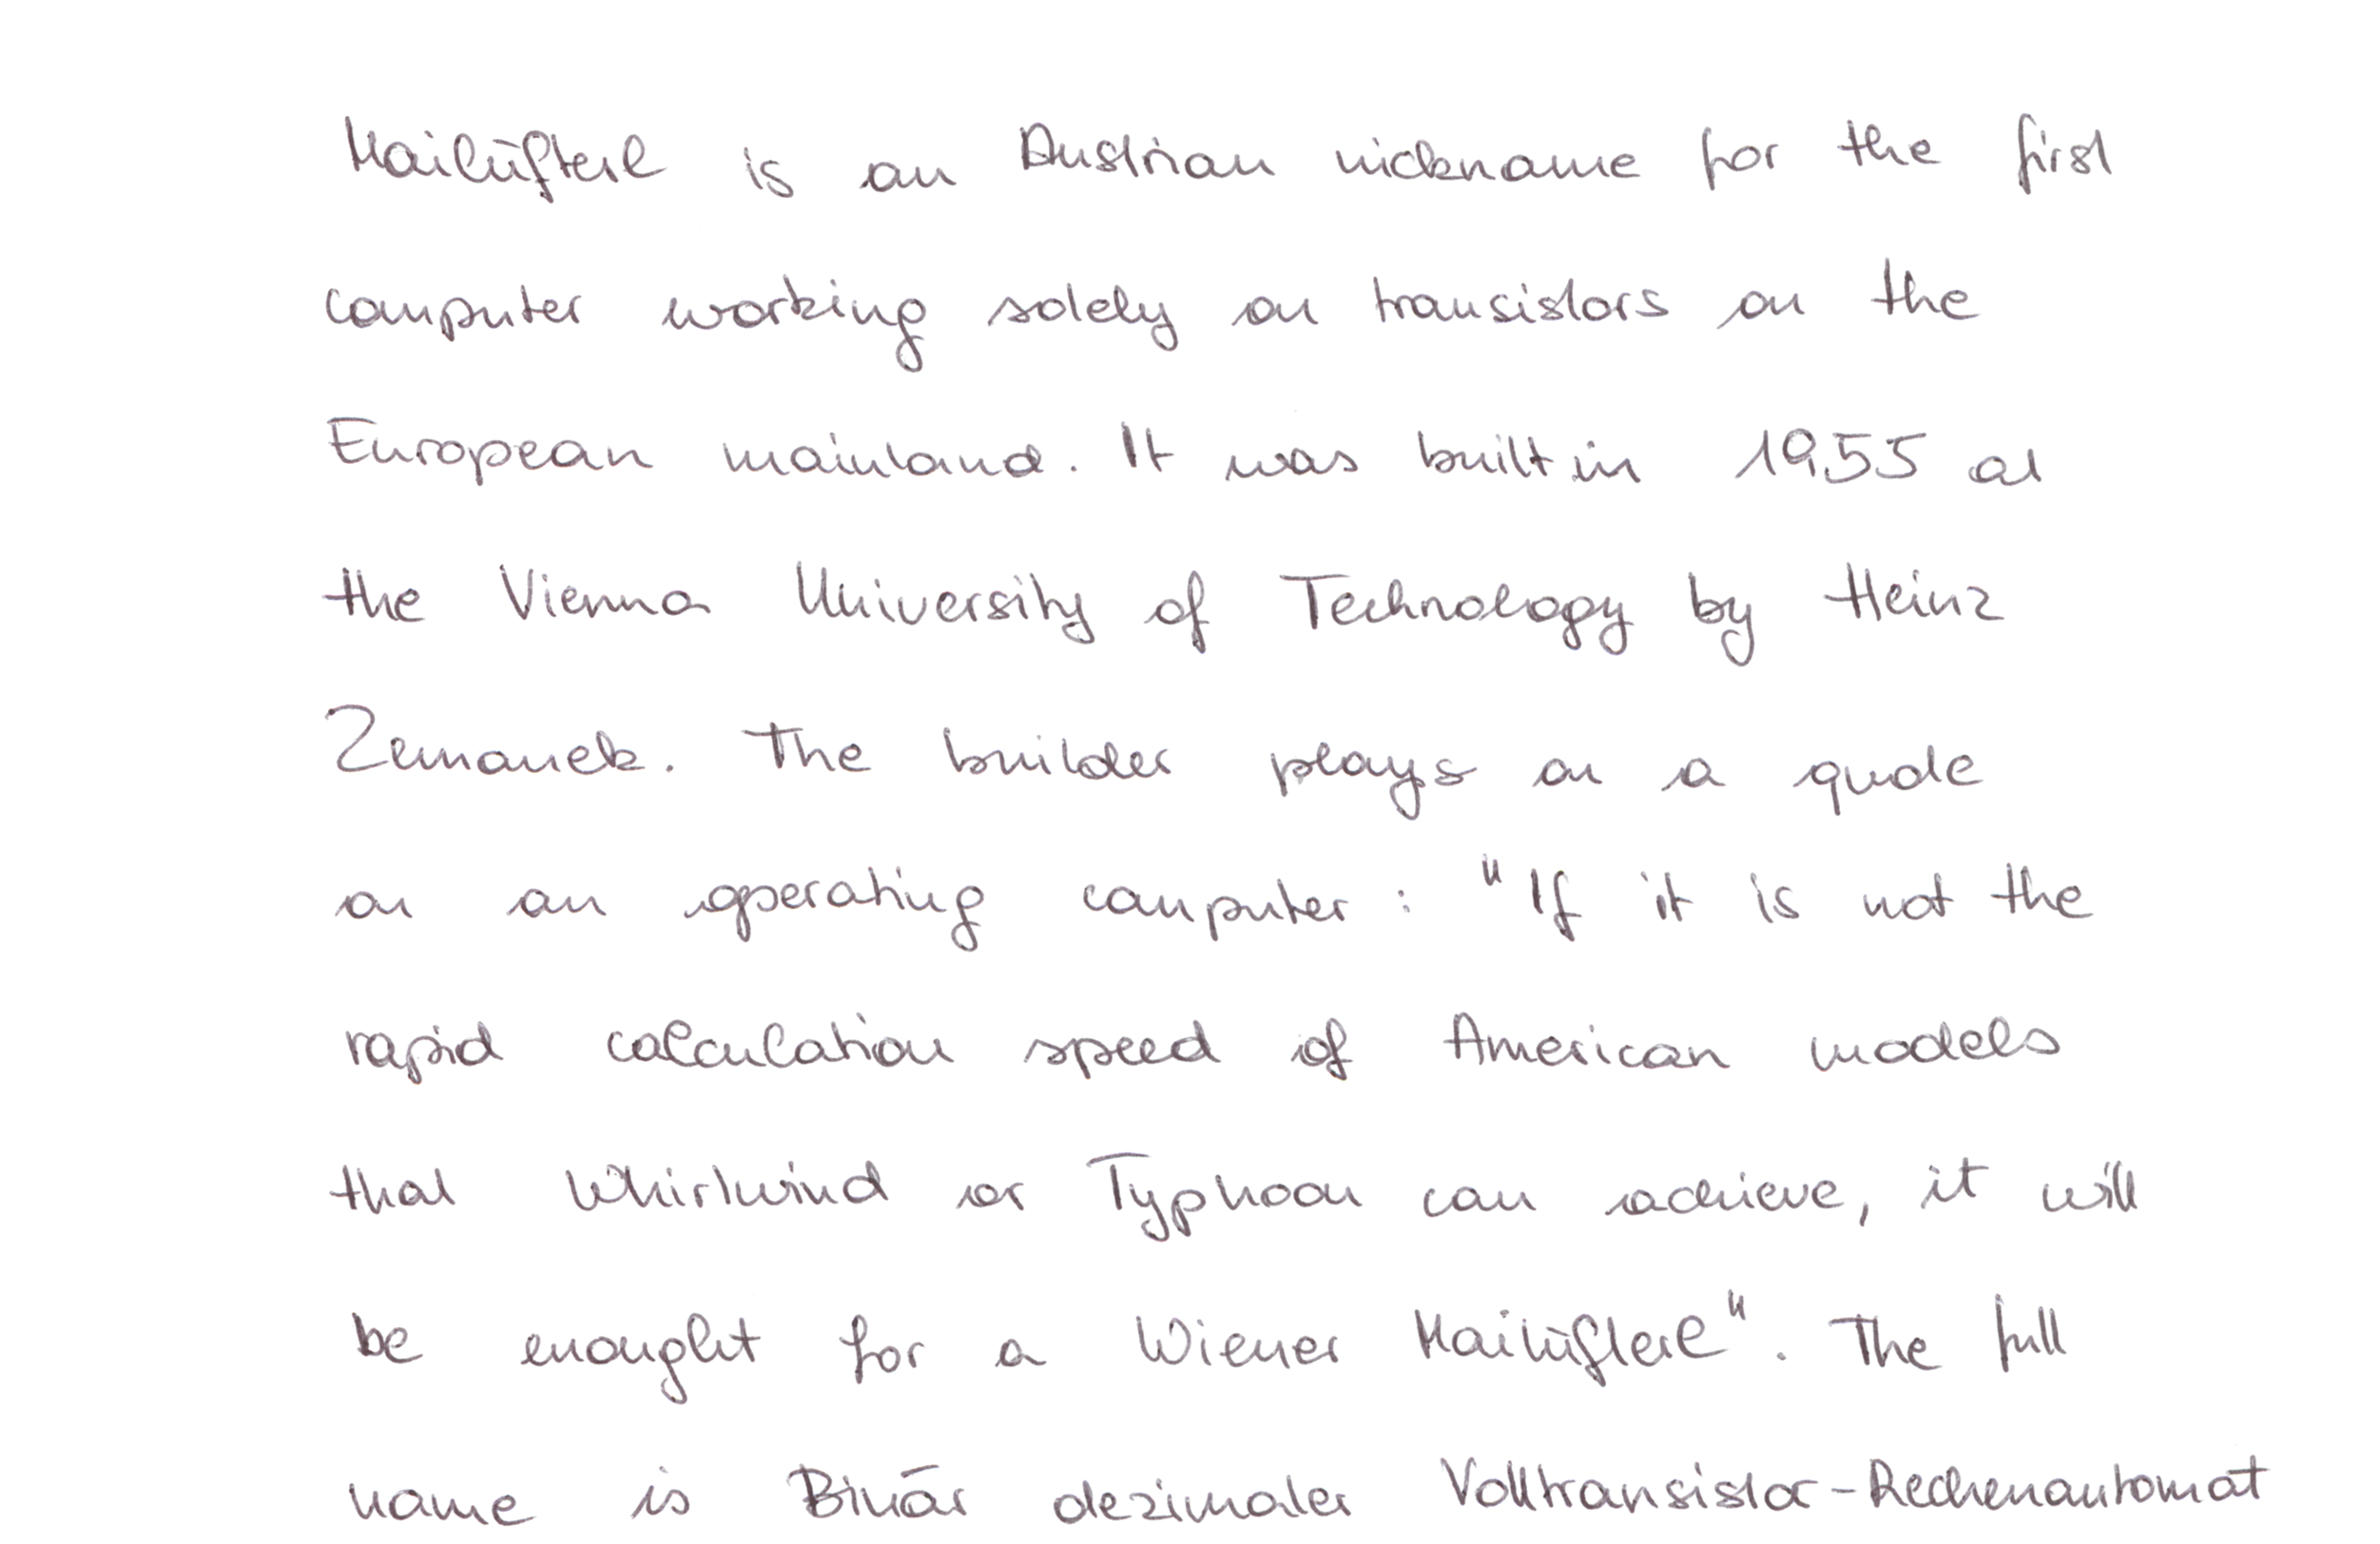 Mailüfterl is an Austrian nickname for the first
computer working solely on transistors on the
European mainland. It was built in 1955 at
the Vienna University of Technology by Heinz
Zemanek. The builder plays on a quote
on an operating computer: "If it is not the
rapid calculation speed of American models
that Whirlwind or Typhoon can achieve, it will
be enought for a Wiener Mailüfterl". The full
name is Binär dezimaler Volltransistor-Rechenautomat